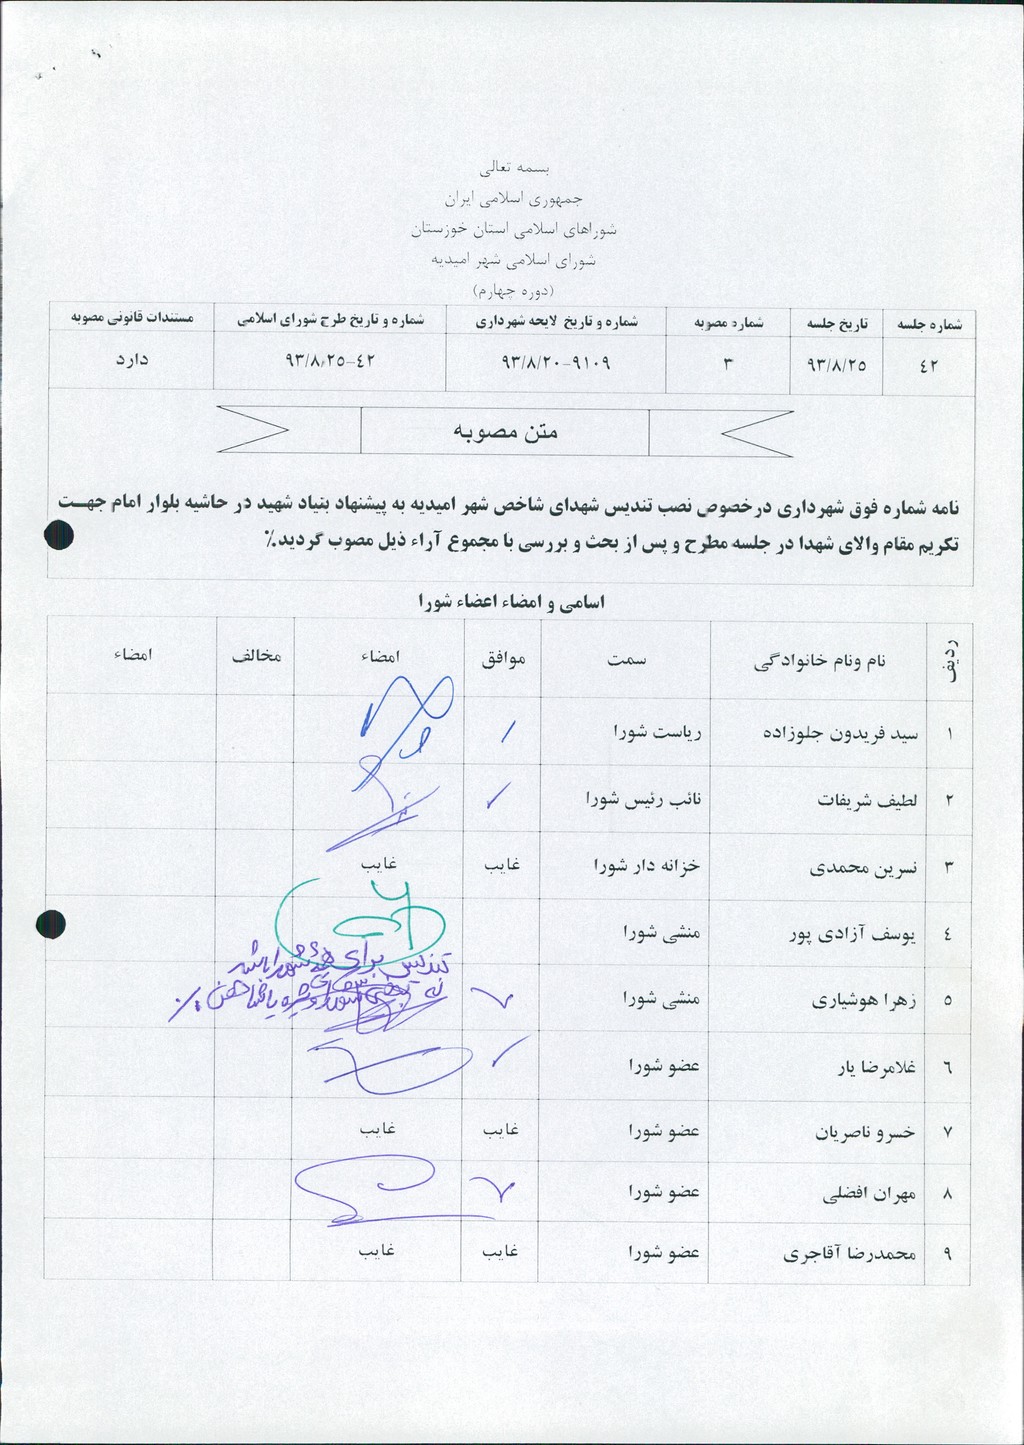 بسمه تعالی
جمهوری اسلامی ایران
شوراهای اسلامی استان خوزستان
شورای اسلامی شهر امیدیه
(دوره چهارم)
شماره جلسه تاریخ جلسه شماره مصوبه شماره و تاریخ لایحه شهرداری شماره و تاریخ طرح شورای اسلامی مستندات قانونی مصوبه
٤٢ ٩٣/٨/٢٥ ٣ ٩١٠٩-٩٣/٨/٢٠ ٤٢-٩٣/٨/٢٥ دارد
متن مصوبه
نامه شماره فوق شهرداری درخصوص نصب تندیس شهدای شاخص شهر امیدیه به پیشنهاد بنیاد شهید در حاشیه بلوار امام جهت
تکریم مقام والای شهدا در جلسه مطرح و پس از بحث و بررسی با مجموع آراء ذیل مصوب گردید٪
اسامی و امضاء اعضاء شورا
ردیف نام ونام خانوادگی سمت موافق امضاء مخالف امضاء
١ سید فریدون جلوزاده ریاست شورا
٢ لطیف شریفات نائب رئیس شورا
٣ نسرین محمدی خزانه دار شورا غایب غایب
٤ یوسف آزادی پور منشی شورا
تندیس برای همه شهدا باشد
٥ زهرا هوشیاری منشی شورا
نه
٦ غلامرضا یار عضو شورا
٧ خسرو ناصریان عضو شورا غایب غایب
٨ مهران افضلی عضو شورا
٩ محمدرضا آقاجری عضو شورا غایب غایب